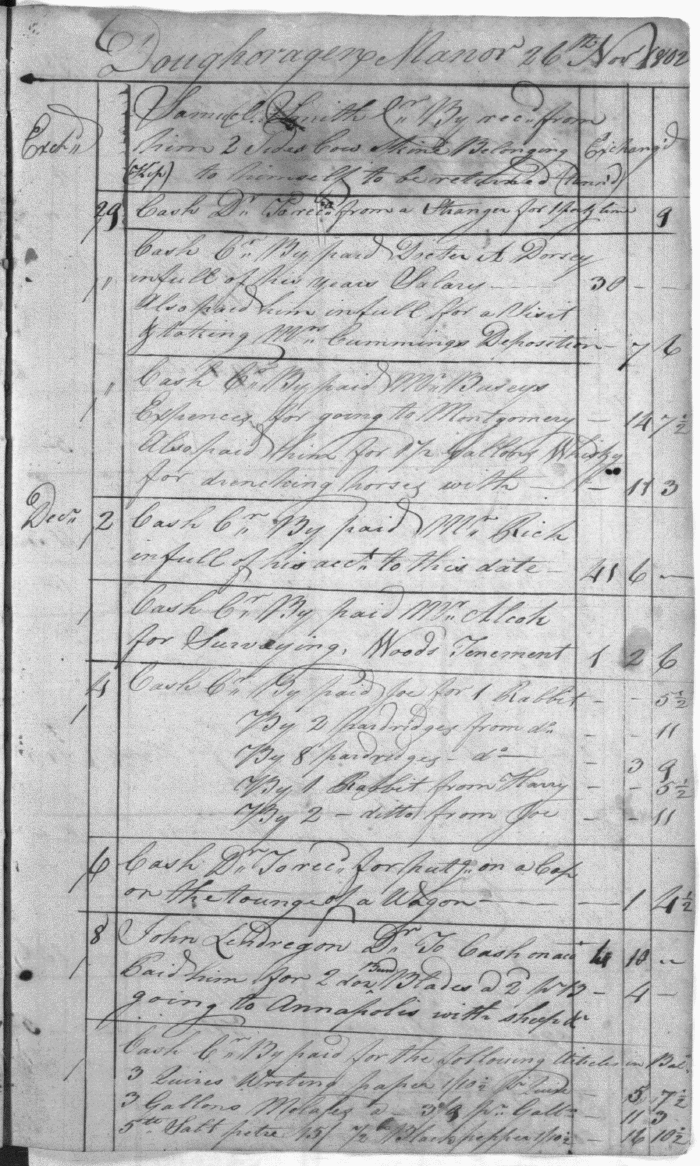 Doughoragen Manor 26th Novr 1802
Samuel Smith Cr By recd from
Exchd him 2 Sides Cow Skins Belonging Exchang'd
(Kip) to himself to be returned (tann'd)
29 Cash Dr To recd from a Stranger for 1 party lime 9
Cash Cr By paid Docter A Dorsey
" in full of his years Salary 30 - -
Also paid him in full for a Visit
& taking Mrs Cummings Deposition - 7 6
" Cash Cr By paid Mr Buseys
Expences for going to Montgomery - 14 7½
Also paid them for 1½ Gallons Whisky
for drenching horses with - 11 3
Decr 2 Cash Cr By paid Mr Rich
in full of his acct to this date - 41 6 -
Cash Cr By paid Mr Alcok
for Surveying, Woods Tenement 1 2 6
4 Cash Cr By paid Joe for 1 Rabbit - - 5½
By 2 pardridges from do - - 11
By 8 pardridges - do - 3 9
By 1 Rabbit from Harry - - 5½
By 2 - ditto from Joe - - 11
6 Cash Dr To recd for putg on a Cap
on the tounge of a Wagon - 1 4½
8 John Lendregon Dr To Cash on acct 4 10 -
Paid him for 2 doz Blades a 2 pr B - 4 -
going to Annapolis with sheep &c
Cash Cr By paid for the following Articles in Bal.
3 Quires Writing paper 1/10½ pr Quire - 5 7½
3 Gallons Molases a - 3/9 pr Galln - 11 3
5 lb Salt petre 15/ ½ lb Black pepper 1/10½ - 16 10½